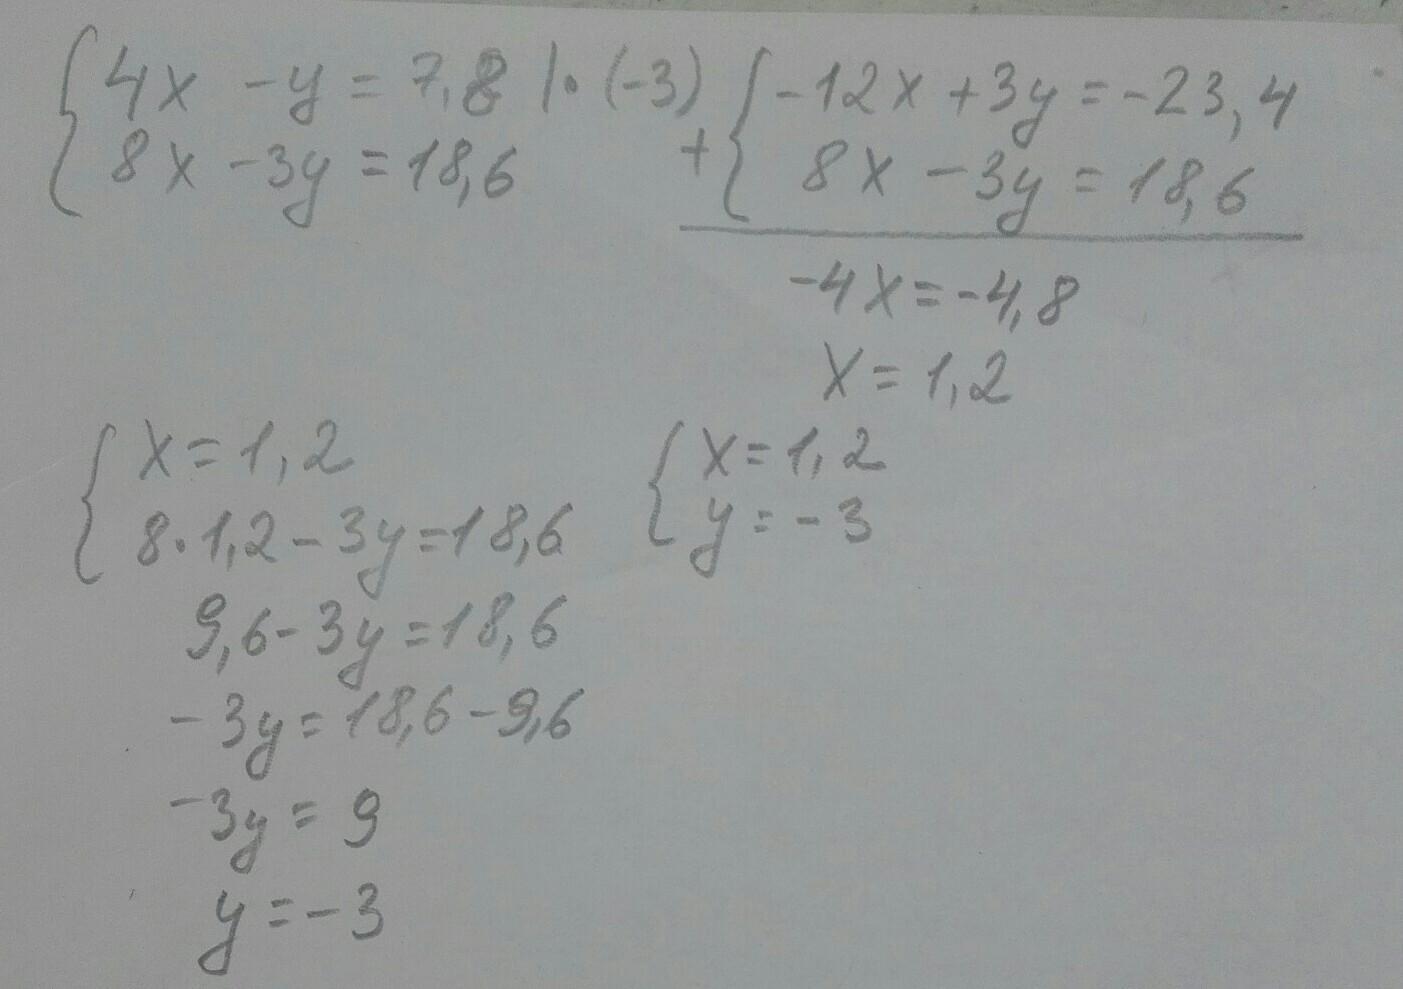 4x - y = 7,8 |· (-3)
8x - 3y = 18,6
-12x + 3y = -23,4
+ 8x - 3y = 18,6
-4x = -4,8
x = 1,2
x = 1,2
8·1,2 - 3y = 18,6
9,6 - 3y = 18,6
-3y = 18,6 - 9,6
-3y = 9
y = -3
x = 1,2
y = -3